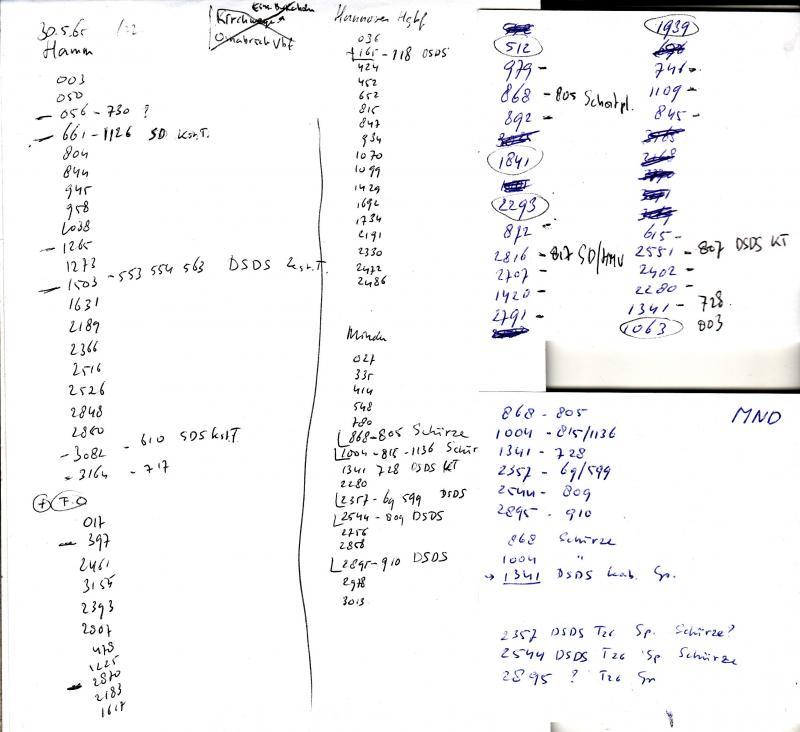 30.5.65 1:2
Hamm
003
050
056 - 730 ?
661 - 1126 SD Kst.T.
804
844
945
958
1038
1265
1273
1503 - 553 554 563 DSDS Kst.T.
1631
2189
2366
2516
2526
2848
2850
3082 - 610 SDS Kst.T
3164 - 717
017
397
2461
3155
2393
2807
478
1225
2870
2183
1617
Osnabrück Hbf
Hannover Hgbf
036
165 - 718 DSDS
424
452
652
815
847
934
1070
1099
1429
1692
1734
2191
2330
2472
2486
Minden
027
335
414
548
780
868-805 Schürze
1004-815-1136 Schür
1341 728 DSDS KT
2280
2357-69 599 DSDS
2544-809 DSDS
2756
2858
2895-910 DSDS
2978
3013
512
979 -
868 - 805
892 -
1841
2293
872 -
2816 - 817 SD/
2707 -
1420 -
2791 -
1939
746 -
1109 -
845 -
615 -
2551 - 807 DSDS KT
2402 -
2280 -
1341 - 728
1063 003
MND
868 - 805
1004 - 815/1136
1341 - 728
2357 - 69/599
2544 - 809
2895 - 910
868 Schürze
1004 "
→ 1341 DSDS Kab. Sp.
2357 DSDS T26 Sp. Schürze?
2544 DSDS T26 Sp Schürze
2895 ? T26 Sp